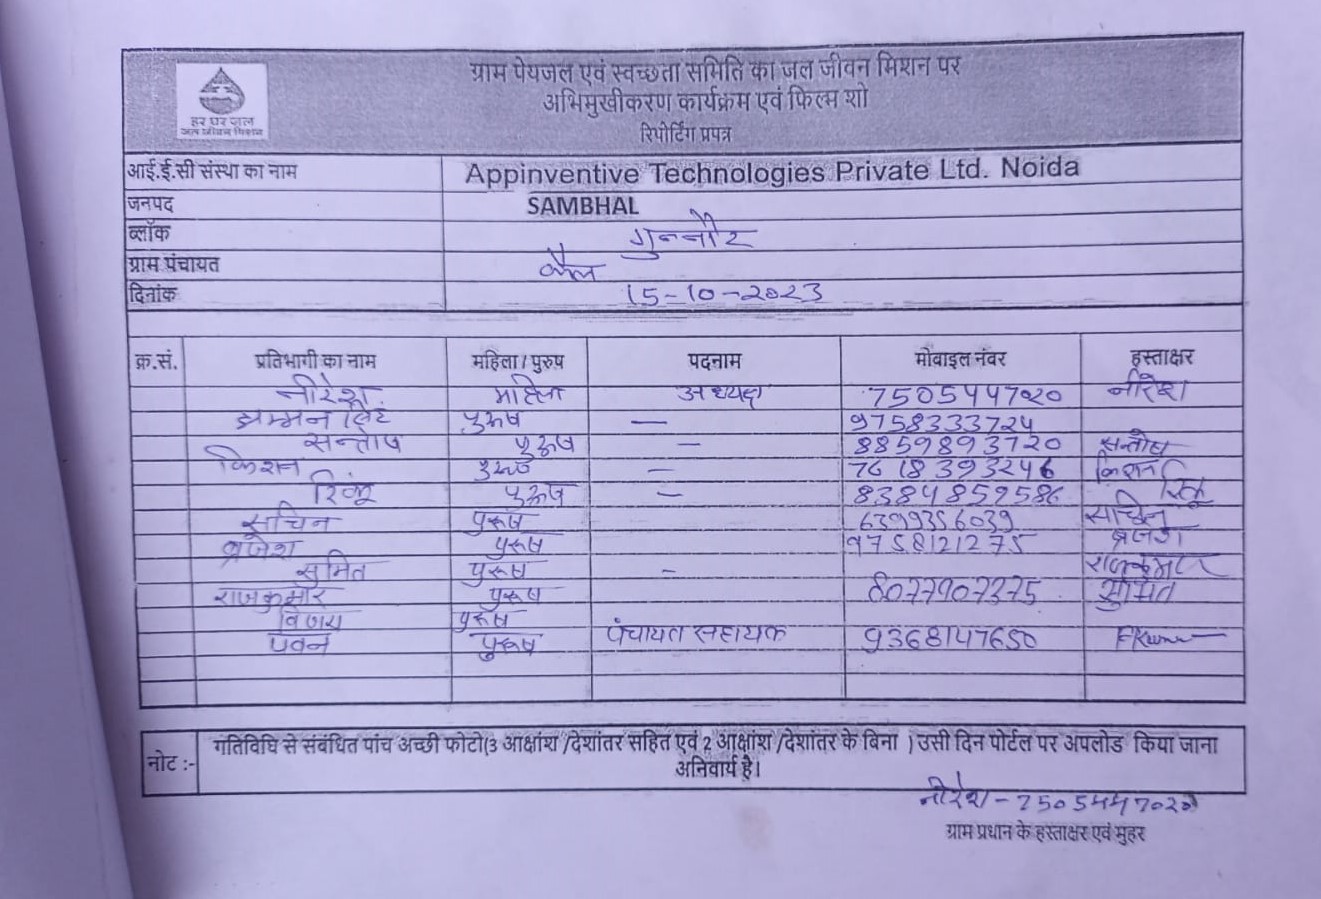 ग्राम पेयजल एवं स्वच्छता समिति का जल जीवन मिशन पर
अभिमुखीकरण कार्यक्रम एवं फिल्म शो
रिपोर्टिंग प्रपत्र
हर घर जल
जल जीवन मिशन
आई.ई.सी संस्था का नाम Appinventive Technologies Private Ltd. Noida
जनपद SAMBHAL
ब्लॉक गुन्नौर
ग्राम पंचायत कैल
दिनांक 15-10-2023
क्र.सं. प्रतिभागी का नाम महिला / पुरुष पदनाम मोबाइल नंबर हस्ताक्षर
नीरेश महिला अध्यक्ष 7505447020 नीरेश
झम्मन सिंह पुरूष — 9758333724
सन्तोष पुरूष — 8859893720 सन्तोष
किशन पुरूष — 7618393246 किशन
रिंकू पुरूष — 8384859586 रिंकू
सचिन पुरूष 6399356039 सचिन
ब्रजेश पुरूष 9758121275 ब्रजेश
सुमित पुरूष — राजकुमार
राजकुमार पुरूष 8077907375 सुमित
विजय पुरूष
पवन पुरूष पंचायत सहायक 9368147650
नोट :- गतिविधि से संबंधित पांच अच्छी फोटो(3 आक्षांश /देशांतर सहित एवं 2 आक्षांश /देशांतर के बिना ) उसी दिन पोर्टल पर अपलोड किया जाना
अनिवार्य है।
नीरेश - 7505447020
ग्राम प्रधान के हस्ताक्षर एवं मुहर